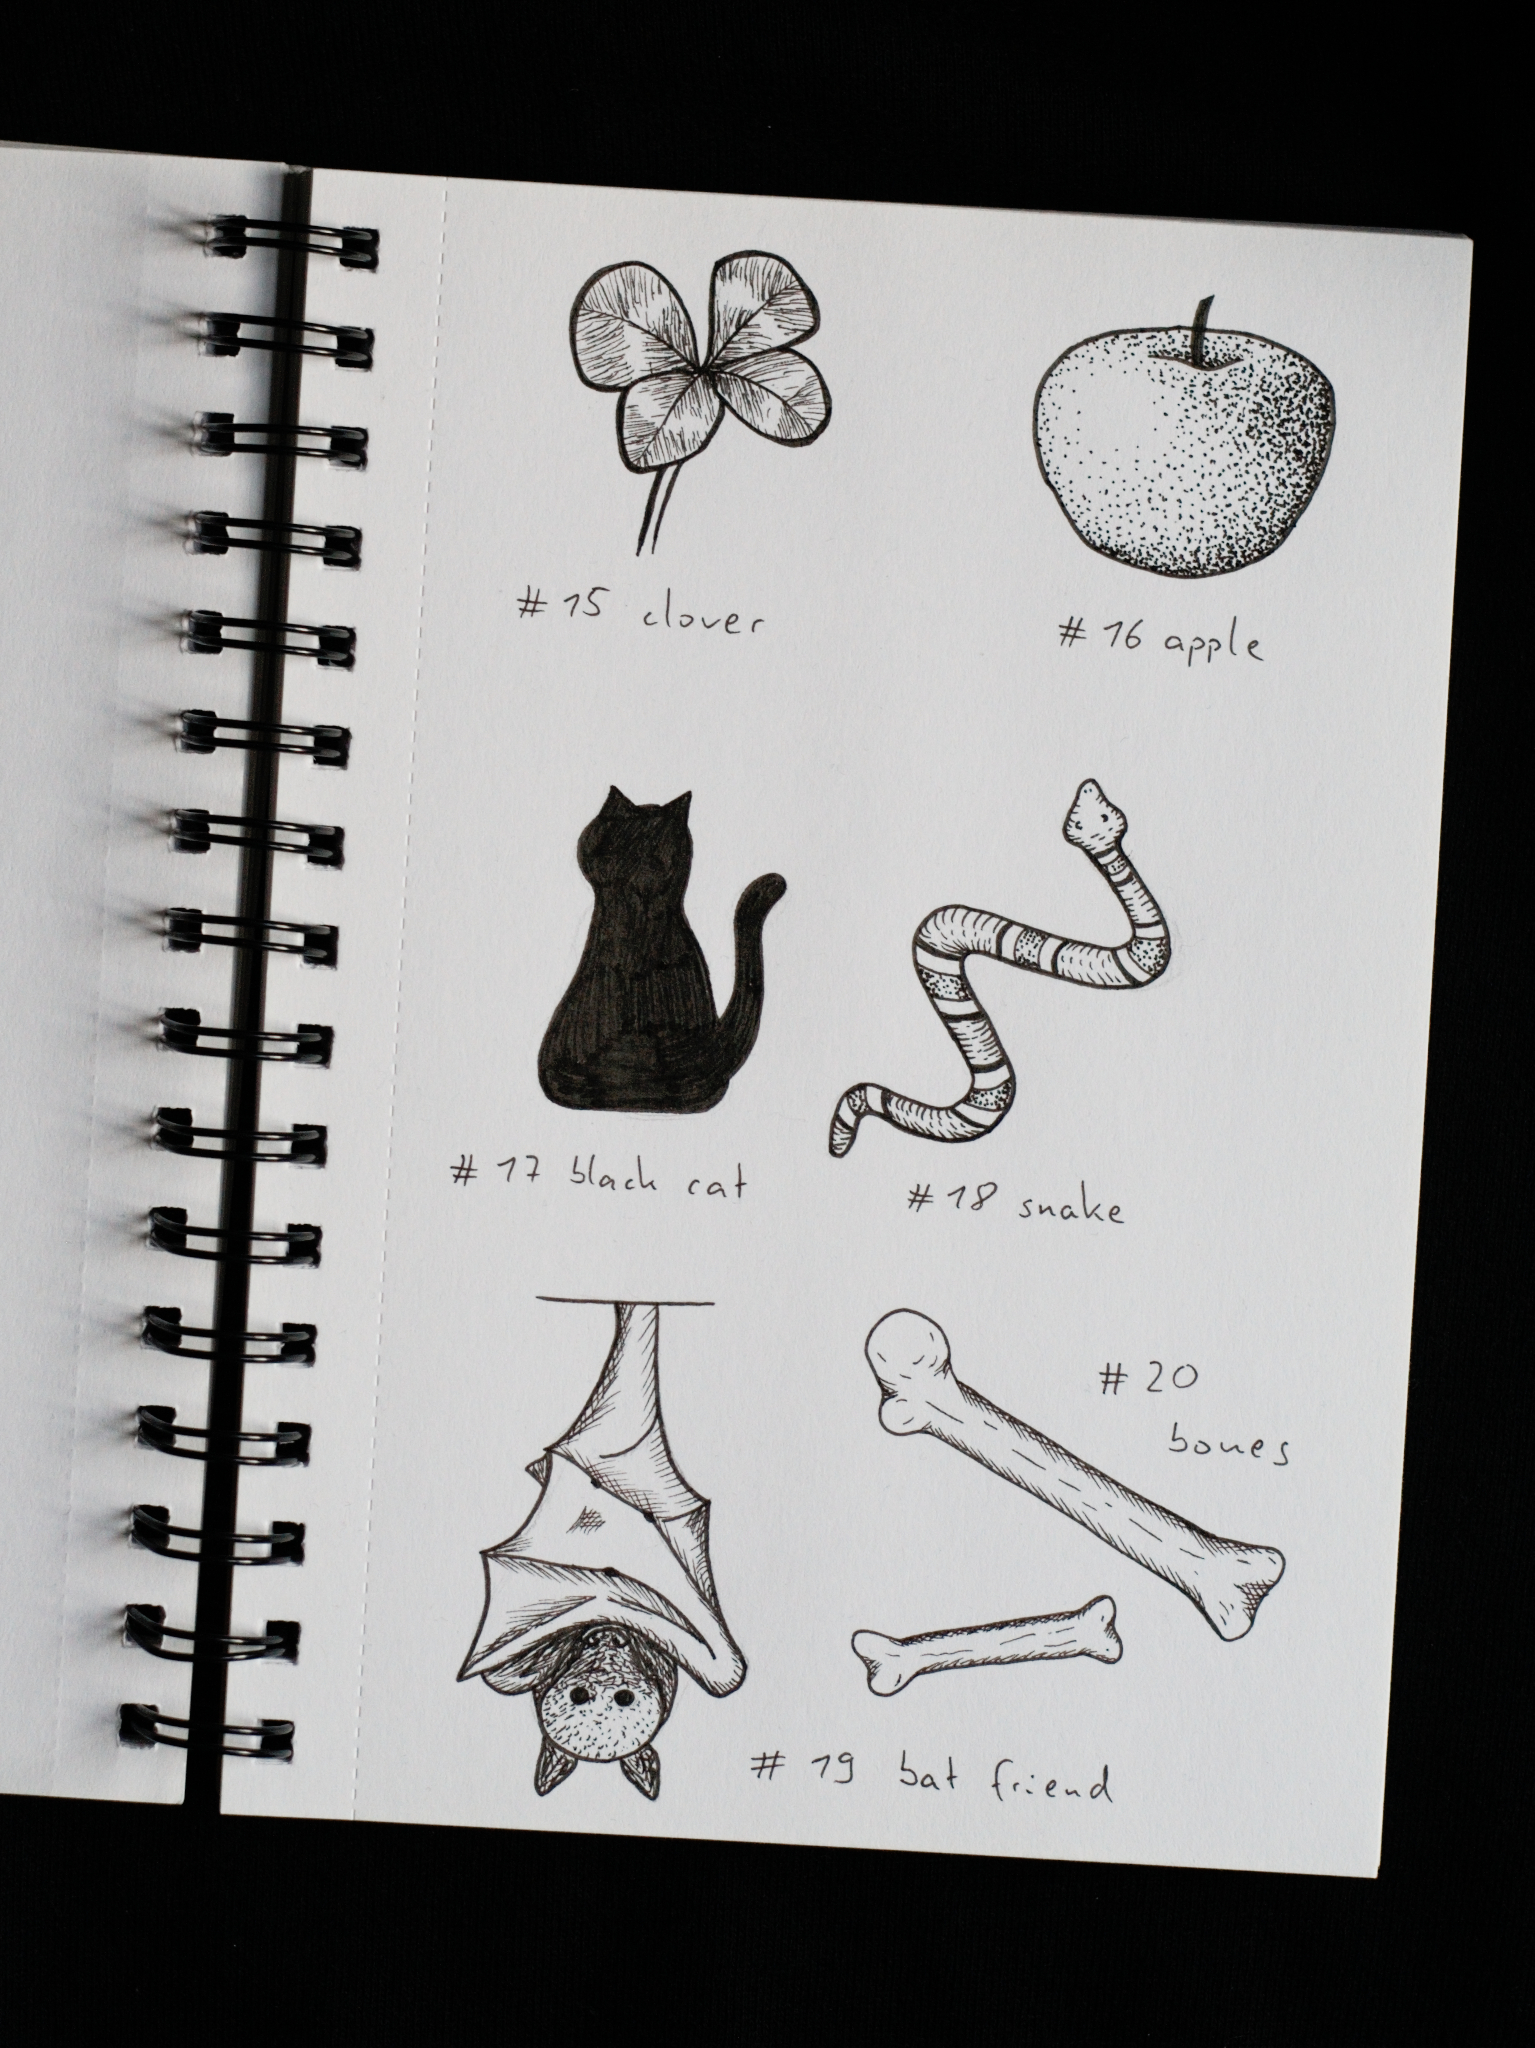 # 15 clover
# 16 apple
# 17 black cat
# 18 snake
# 20
bones
# 19 bat friend